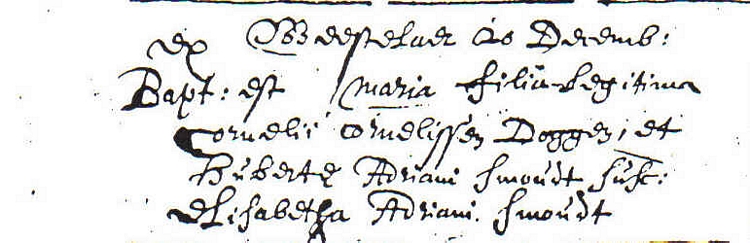 ex Weestelaer 20 Decemb:
Bapt: est Maria filia Legitima
Cornelii Cornelissen Doggen, et
Huberte Adriani Smoudt susc:
Elisabetha Adriani Smoudt